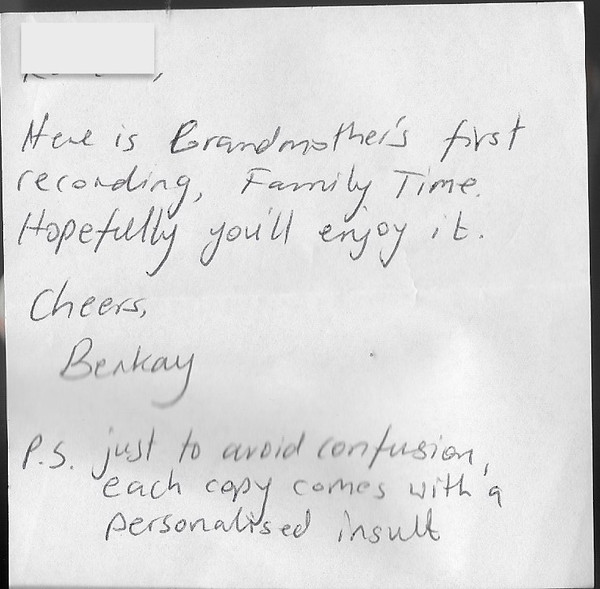 Here is Grandmother's first
recording, Family Time.
Hopefully you'll enjoy it.
Cheers,
Berkay
P.S. just to avoid confusion,
each copy comes with a
personalised insult